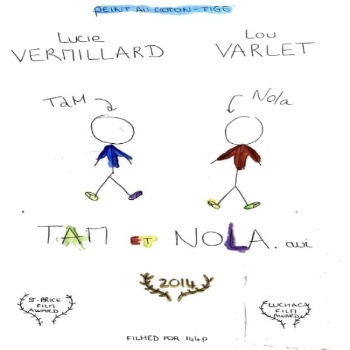 PEINT AU COTON-TIGE
Lucie Lou
VERMILLARD VARLET
TAM Nola
TAM ET NOLA.avi
2014
ST-BRICE
FILM
AWARD
LUCHACA
FILM
AWARD
FILMED FOR 144P